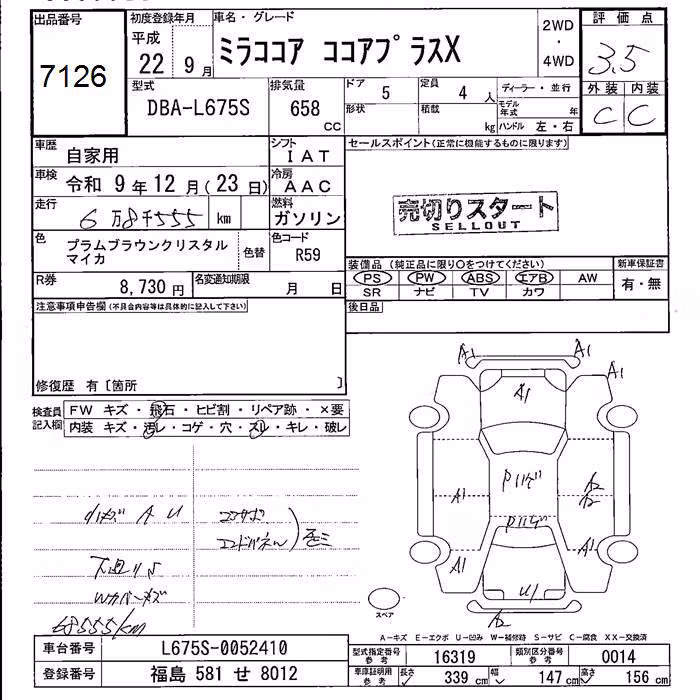 出品番号
7126
初度登録年月
平成
22 9月
車名・グレード
ミラココア ココアプラスX
2WD
・
4WD
評価点
3.5
外装 内装
C C
型式
DBA-L675S
排気量
658
CC
ドア 5
形状
定員 4人
積載 kg
ディーラー・並行
モデル年式 年
ハンドル 左・右
車歴 自家用
シフト IAT
車検 令和 9年12月(23日)
冷房 AAC
走行 6万8千555 km
燃料 ガソリン
色 プラムブラウンクリスタル
マイカ
色替
色コード
R59
R券 8,730円
名変通知期限 月 日
セールスポイント(正常に機能するものに限ります)
売切りスタート
SELLOUT
装備品(純正品に限り○をつけてください)
PS PW ABS エアB AW
SR ナビ TV カワ
新車保証書
有・無
後日品
注意事項申告欄(不具合内容等は具体的に記入して下さい)
修復歴 有〔箇所 〕
検査員
記入欄
FW キズ・飛石・ヒビ割・リペア跡・×要
内装 キズ・汚レ・コゲ・穴・スレ・キレ・破レ
小キズ A U
下廻りS
Wカバーキズ
68555km
A1 A1
A1
A1 Pハゲ A2
Pハゲ
A1 A1
U1
A2
スペア
A-キズ E-エクボ U-凹み W-補修跡 S-サビ C-腐食 XX-交換済
車台番号 L675S-0052410
登録番号 福島 581 せ 8012
型式指定番号
参考
16319
類別区分番号
参考
0014
車庫証明用
参考
長さ 339 cm
幅 147 cm
高さ 156 cm